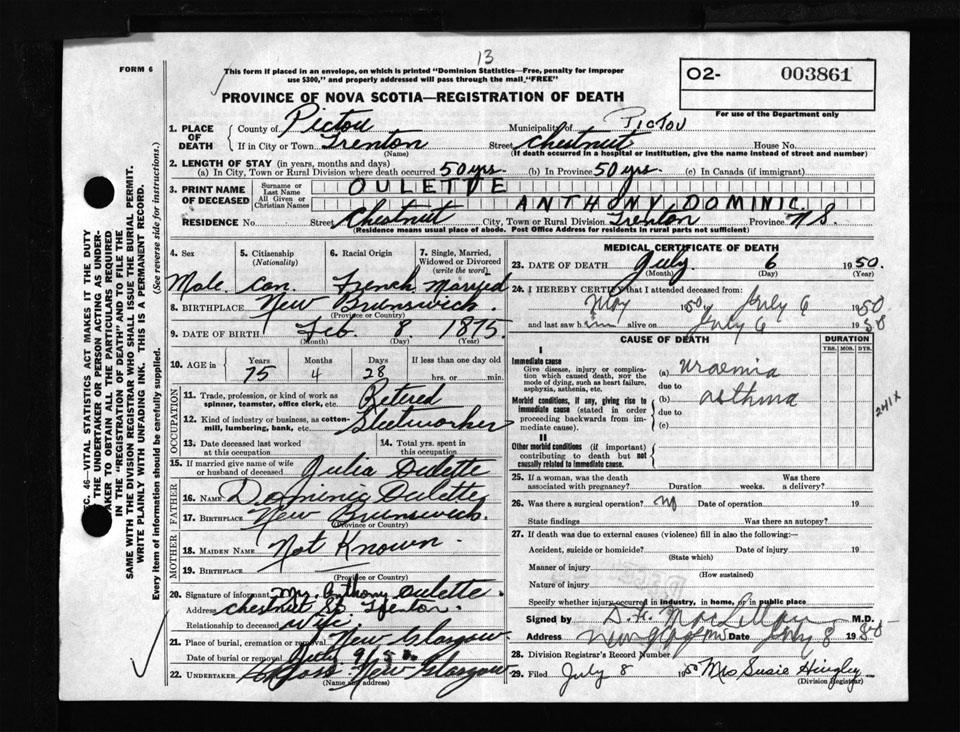 13
FORM 6
This form if placed in an envelope, on which is printed "Dominion Statistics—Free, penalty for improper
use $300," and properly addressed will pass through the mail "FREE"
O2- 003861
For use of the Department only
PROVINCE OF NOVA SCOTIA—REGISTRATION OF DEATH
1. PLACE OF DEATH { County of Pictou Municipality of Pictou
If in City or Town Trenton Street Chestnut House No.
(Name) (If death occurred in a hospital or institution, give the name instead of street and number)
2. LENGTH OF STAY (in years, months and days)
(a) In City, Town or Rural Division where death occurred 50 yrs. (b) In Province 50 yrs. (c) In Canada (if immigrant)
3. PRINT NAME OF DECEASED { Surname or Last Name OULETTE
All Given or Christian Names ANTHONY DOMINIC
RESIDENCE No. Street Chestnut City, Town or Rural Division Trenton Province N S.
(Residence means usual place of abode. Post Office Address for residents in rural parts not sufficient)
4. Sex 5. Citizenship (Nationality) 6. Racial Origin 7. Single, Married, Widowed or Divorced (write the word)
Male Can. French Married
8. BIRTHPLACE New Brunswick.
(Province or Country)
9. DATE OF BIRTH Feb. 8 1875
(Month) (Day) (Year)
10. AGE in Years Months Days If less than one day old
75 4 28 hrs. or min.
OCCUPATION
11. Trade, profession, or kind of work as spinner, teamster, office clerk, etc. Retired
12. Kind of industry or business, as cotton-mill, lumbering, bank, etc. Steelworker
13. Date deceased last worked at this occupation 14. Total yrs. spent in this occupation
15. If married give name of wife or husband of deceased Julia Oulette
FATHER
16. NAME Dominic Oulette
17. BIRTHPLACE New Brunswick.
(Province or Country)
MOTHER
18. MAIDEN NAME Not Known.
19. BIRTHPLACE
(Province or Country)
20. Signature of informant Mrs. Anthony Oulette.
Address Chestnut St. Trenton.
Relationship to deceased Wife.
21. Place of burial, cremation or removal New Glasgow
Date of burial or removal July 9/50.
22. UNDERTAKER New Glasgow
(Name and address)
MEDICAL CERTIFICATE OF DEATH
23. DATE OF DEATH July 6 1950
(Month) (Day) (Year)
24. I HEREBY CERTIFY that I attended deceased from
May 1950 July 6 1950
and last saw him alive on July 6 1950
CAUSE OF DEATH DURATION
YRS. MOS. DYS.
I
Immediate cause
Give disease, injury or complication which caused death, not the mode of dying, such as heart failure, asphyxia, asthenia, etc.
(a) uraemia
due to
Morbid conditions, if any, giving rise to immediate cause (stated in order proceeding backwards from immediate cause).
(b) asthma
due to
(c)
241X
II
Other morbid conditions (if important) contributing to death but not causally related to immediate cause.
25. If a woman, was the death associated with pregnancy? Duration weeks. Was there a delivery?
26. Was there a surgical operation? no Date of operation 19
State findings Was there an autopsy?
27. If death was due to external causes (violence) fill in also the following:—
Accident, suicide or homicide? Date of injury 19
(State which)
Manner of injury
(How sustained)
Nature of injury
Specify whether injury occurred in industry, in home, or in public place
Signed by M.D.
Address New Glasgow Date July 8 1950
28. Division Registrar's Record Number
29. Filed July 8 1950 Mrs Susie Hingley
(Division Registrar)
SEC. 46—VITAL STATISTICS ACT MAKES IT THE DUTY
OF THE UNDERTAKER OR PERSON ACTING AS UNDERTAKER TO OBTAIN ALL THE PARTICULARS REQUIRED
IN THE "REGISTRATION OF DEATH" AND TO FILE THE
SAME WITH THE DIVISION REGISTRAR WHO SHALL ISSUE THE BURIAL PERMIT.
WRITE PLAINLY WITH UNFADING INK. THIS IS A PERMANENT RECORD.
Every item of information should be carefully supplied. (See reverse side for instructions.)